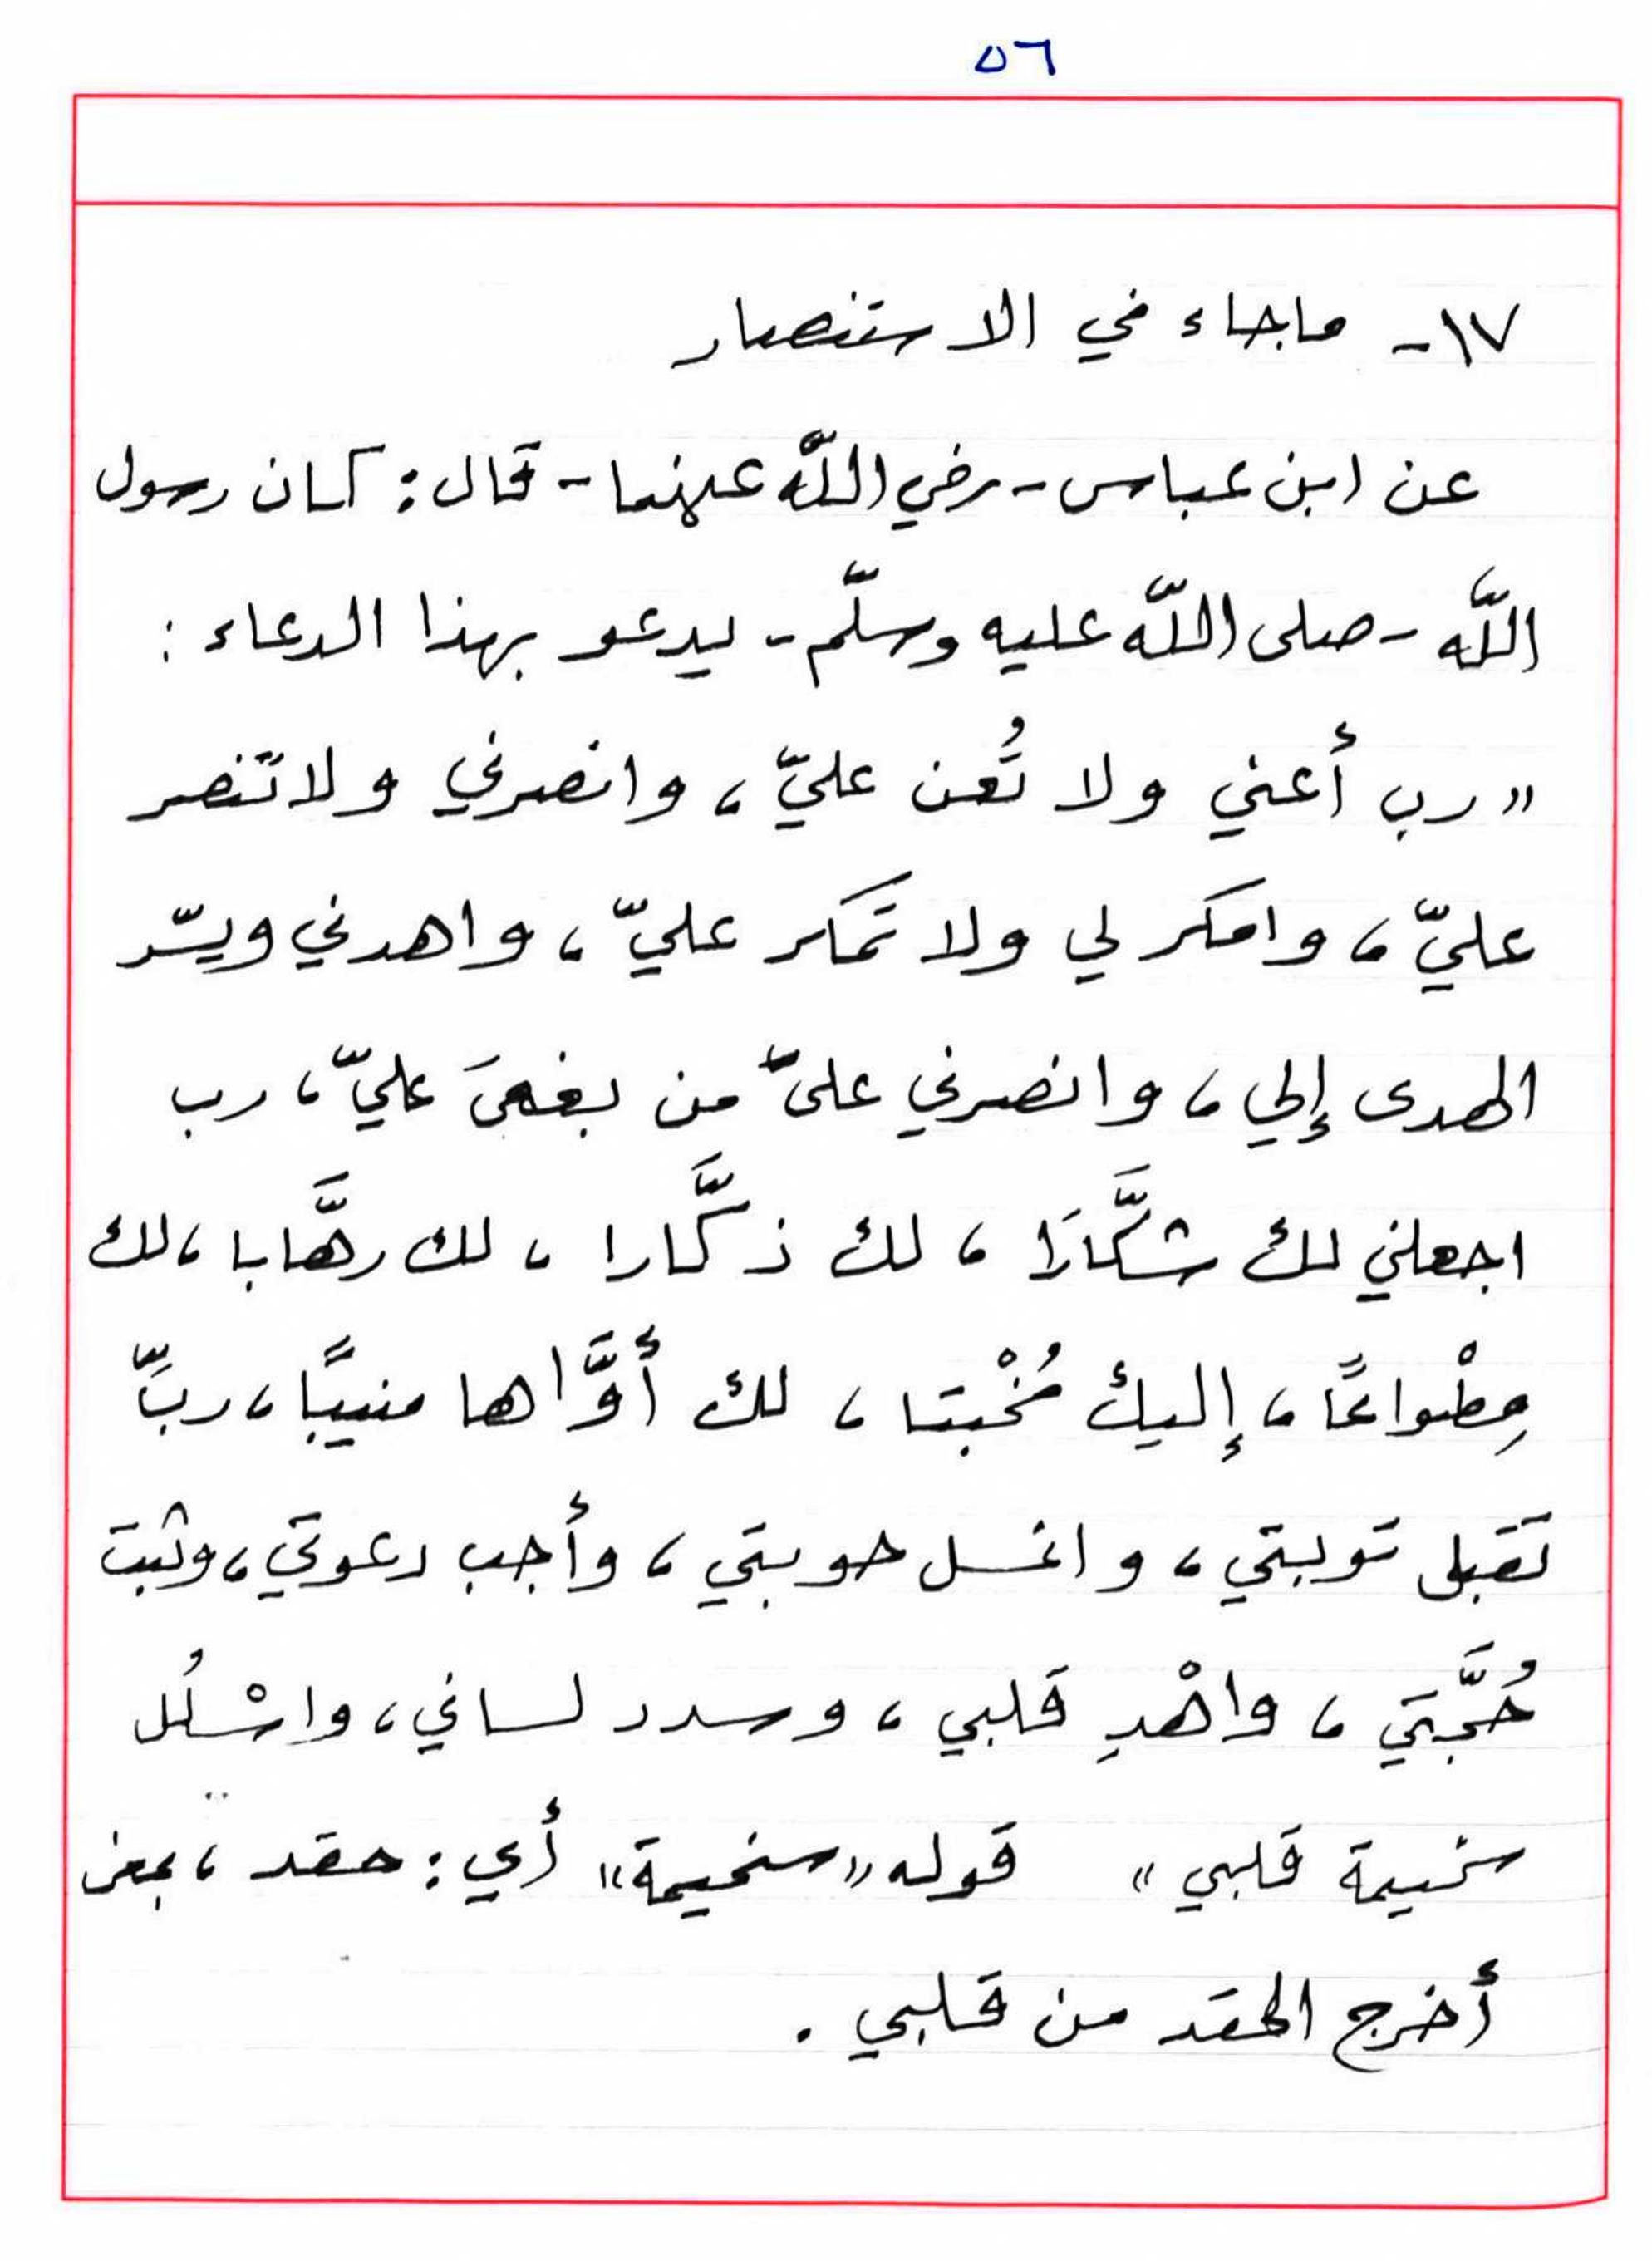 ٥٦
١٧- ماجاء في الاستنصار
عن ابن عباس - رضي اللّه عنهما - قال: كان رسول
اللَّه - صلى اللّه عليه وسلّم - يدعو بهذا الدعاء :
"رب أعني ولا تُعن عليّ، وانصرني ولا تنصر
عليّ، وامكر لي ولا تمَكر عليّ، واهدني ويسّر
الهدى إلي، وانصرني علىّ من بغىَ عليّ، رب
اجعلني لك شكَّارَا، لك ذكَّارا، لك رهَّابا، لك
مِطْواعًا، إليك مُخْبتا، لك أوَّاها منيبًا، ربِّ
تقبل توبتي، واغسل حوبتي، وأجب دعوتي، وثبت
حُجَّتي، واهْدِ قلبي، وسدد لساني، واسْلُل
سخيمة قلبي" قوله "سخيمة" أي: حقد، بمعنى
أخرج الحقد من قلبي .